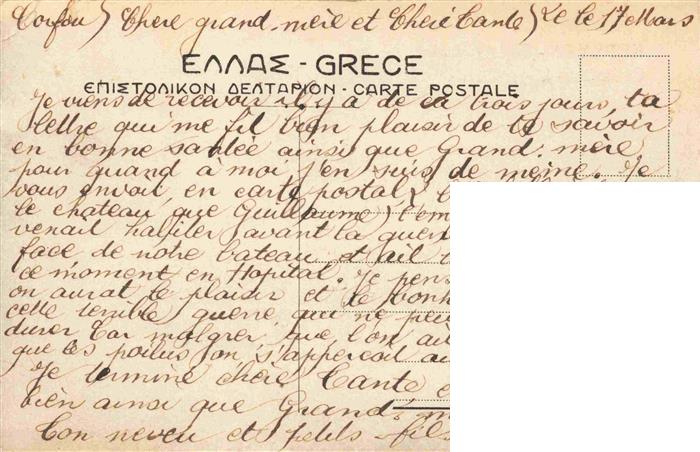 Corfou) Chère grand-mère et Cheré Tante) Le le 17 Mars
ΕΛΛΑΣ - GRECE
ΕΠΙΣΤΟΛΙΚΟΝ ΔΕΛΤΑΡΙΟΝ - CARTE POSTALE
Je viens de recevoir il y a de ca trois jours, ta
lettre qui me fit bien plaisir de te savoir
en bonne santée ainsi que Grand-mère
pour quand à moi j'en suis de meine. Je
vous envoi en carte postal
le chateau que Guillaume) l'em
venait habiter avant la guer
face de notre bateau et
ce moment en Hopital. Je pens
on aurat le plaisir et le bonh
cette terrible guerre qui ne peu
durer Car malgrer que l'on
que les poilus on s'apperçoit
Je termine chère Tante e
bien ainsi que Grand-m
Ton neveu et petits-fils